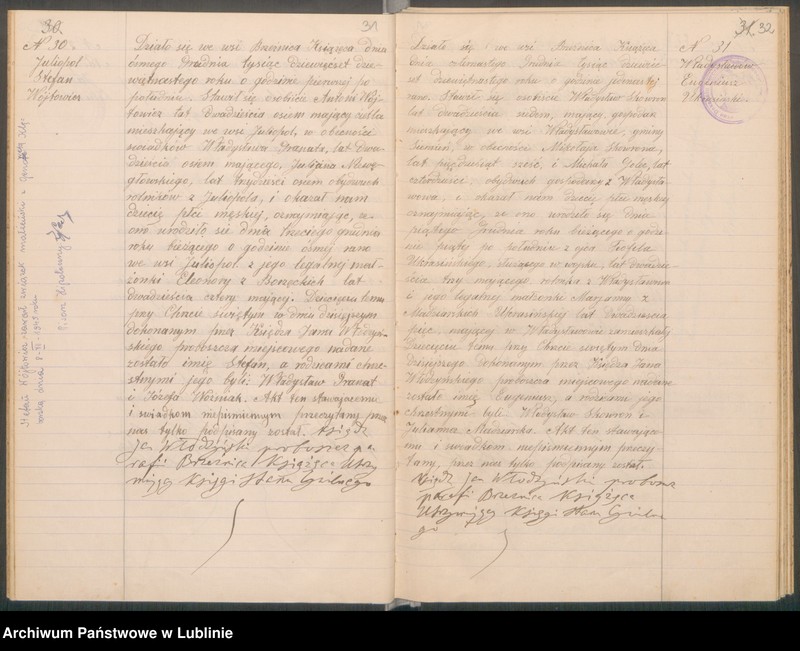 30
N. 30
Juliopol
Stefan
Wójtowicz
31
Działo się we wsi Brzeźnica Książęca dnia
ósmego Grudnia tysiąc dziewięćset dzie-
więtnastego roku o godzinie pierwszej po
południu. Stawił się osobiście Antoni Wój-
towicz lat dwadzieścia osiem mający cieśla
mieszkający we wsi Juliopol, w obecności
świadków Władysława Granata, lat dwa-
dzieścia osiem mającego, Juljana
głowskiego, lat trzydzieści osiem obydwóch
rolników z Juliopola, i okazał nam
dziecię płci męskiej, oznajmiając, że
ono urodziło się dnia trzeciego grudnia
roku bieżącego o godzinie ósmej rano
we wsi Juliopol z jego legalnej mał-
żonki Eleonory z lat
dwadzieścia cztery mającej. Dziecięciu temu
przy Chrzcie świętym w dniu dzisiejszym
dokonanym przez Księdza Jana Włodzyń-
skiego proboszcza miejscowego nadane
zostało imię Stefan, a rodzicami chrze-
stnymi jego byli: Władysław Granat
i Józefa Woźniak. Akt ten stawającemu
i świadkom niepiśmiennym przeczytany przez
nas tylko podpisany został. Ksiądz
jan Włodzyński proboszcz pa-
rafii Brzeźnica Książęca Utrzy-
mujący Księgi Stanu Cywilnego
Stefan Wójtowicz zawarł związek małżeński z
dnia 8-II-1949 roku
32
N. 31
Władysławów
Eugeniusz
Działo się we wsi Brzeźnica Książęca
dnia ósmego Grudnia tysiąc dziewięć-
set dziewiętnastego roku o godzinie jedenastej
rano. Stawił się osobiście Władysław Skowron
lat dwadzieścia siedem, mający, gospodarz
mieszkający we wsi Władysławowie, gminy
w obecności Mikołaja Skowrona,
lat pięćdziesiąt sześć, i Michała lat
czterdzieści, obydwóch gospodarzy z Władysła-
wowa, i okazał nam dziecię płci męskiej
oznajmiając, że ono urodziło się dnia
piątego Grudnia roku bieżącego o godzi-
nie piątej po południu z ojca Teofila
służącego w wojsku, lat dwadzie-
ścia trzy mającego rolnika z Władysławowa
i jego legalnej małżonki Marjanny z
lat dwadzieścia
pięć mającej w Władysławowie zamieszkałej
Dziecięciu temu przy Chrzcie świętym dnia
dzisiejszego dokonanym przez Księdza Jana
Włodzyńskiego proboszcza miejscowego nadane
zostało imię Eugeniusz, a rodzicami jego
chrzestnymi byli Władysław Skowron i
Julianna Akt ten stawające-
mu i świadkom niepiśmiennym przeczy-
tany, przez nas tylko podpisany został.
Ksiądz jan Włodzyński proboszcz
parafi Brzeźnica Książęca
Utrzymujący Księgi Stanu Cywilne-
go
Archiwum Państwowe w Lublinie